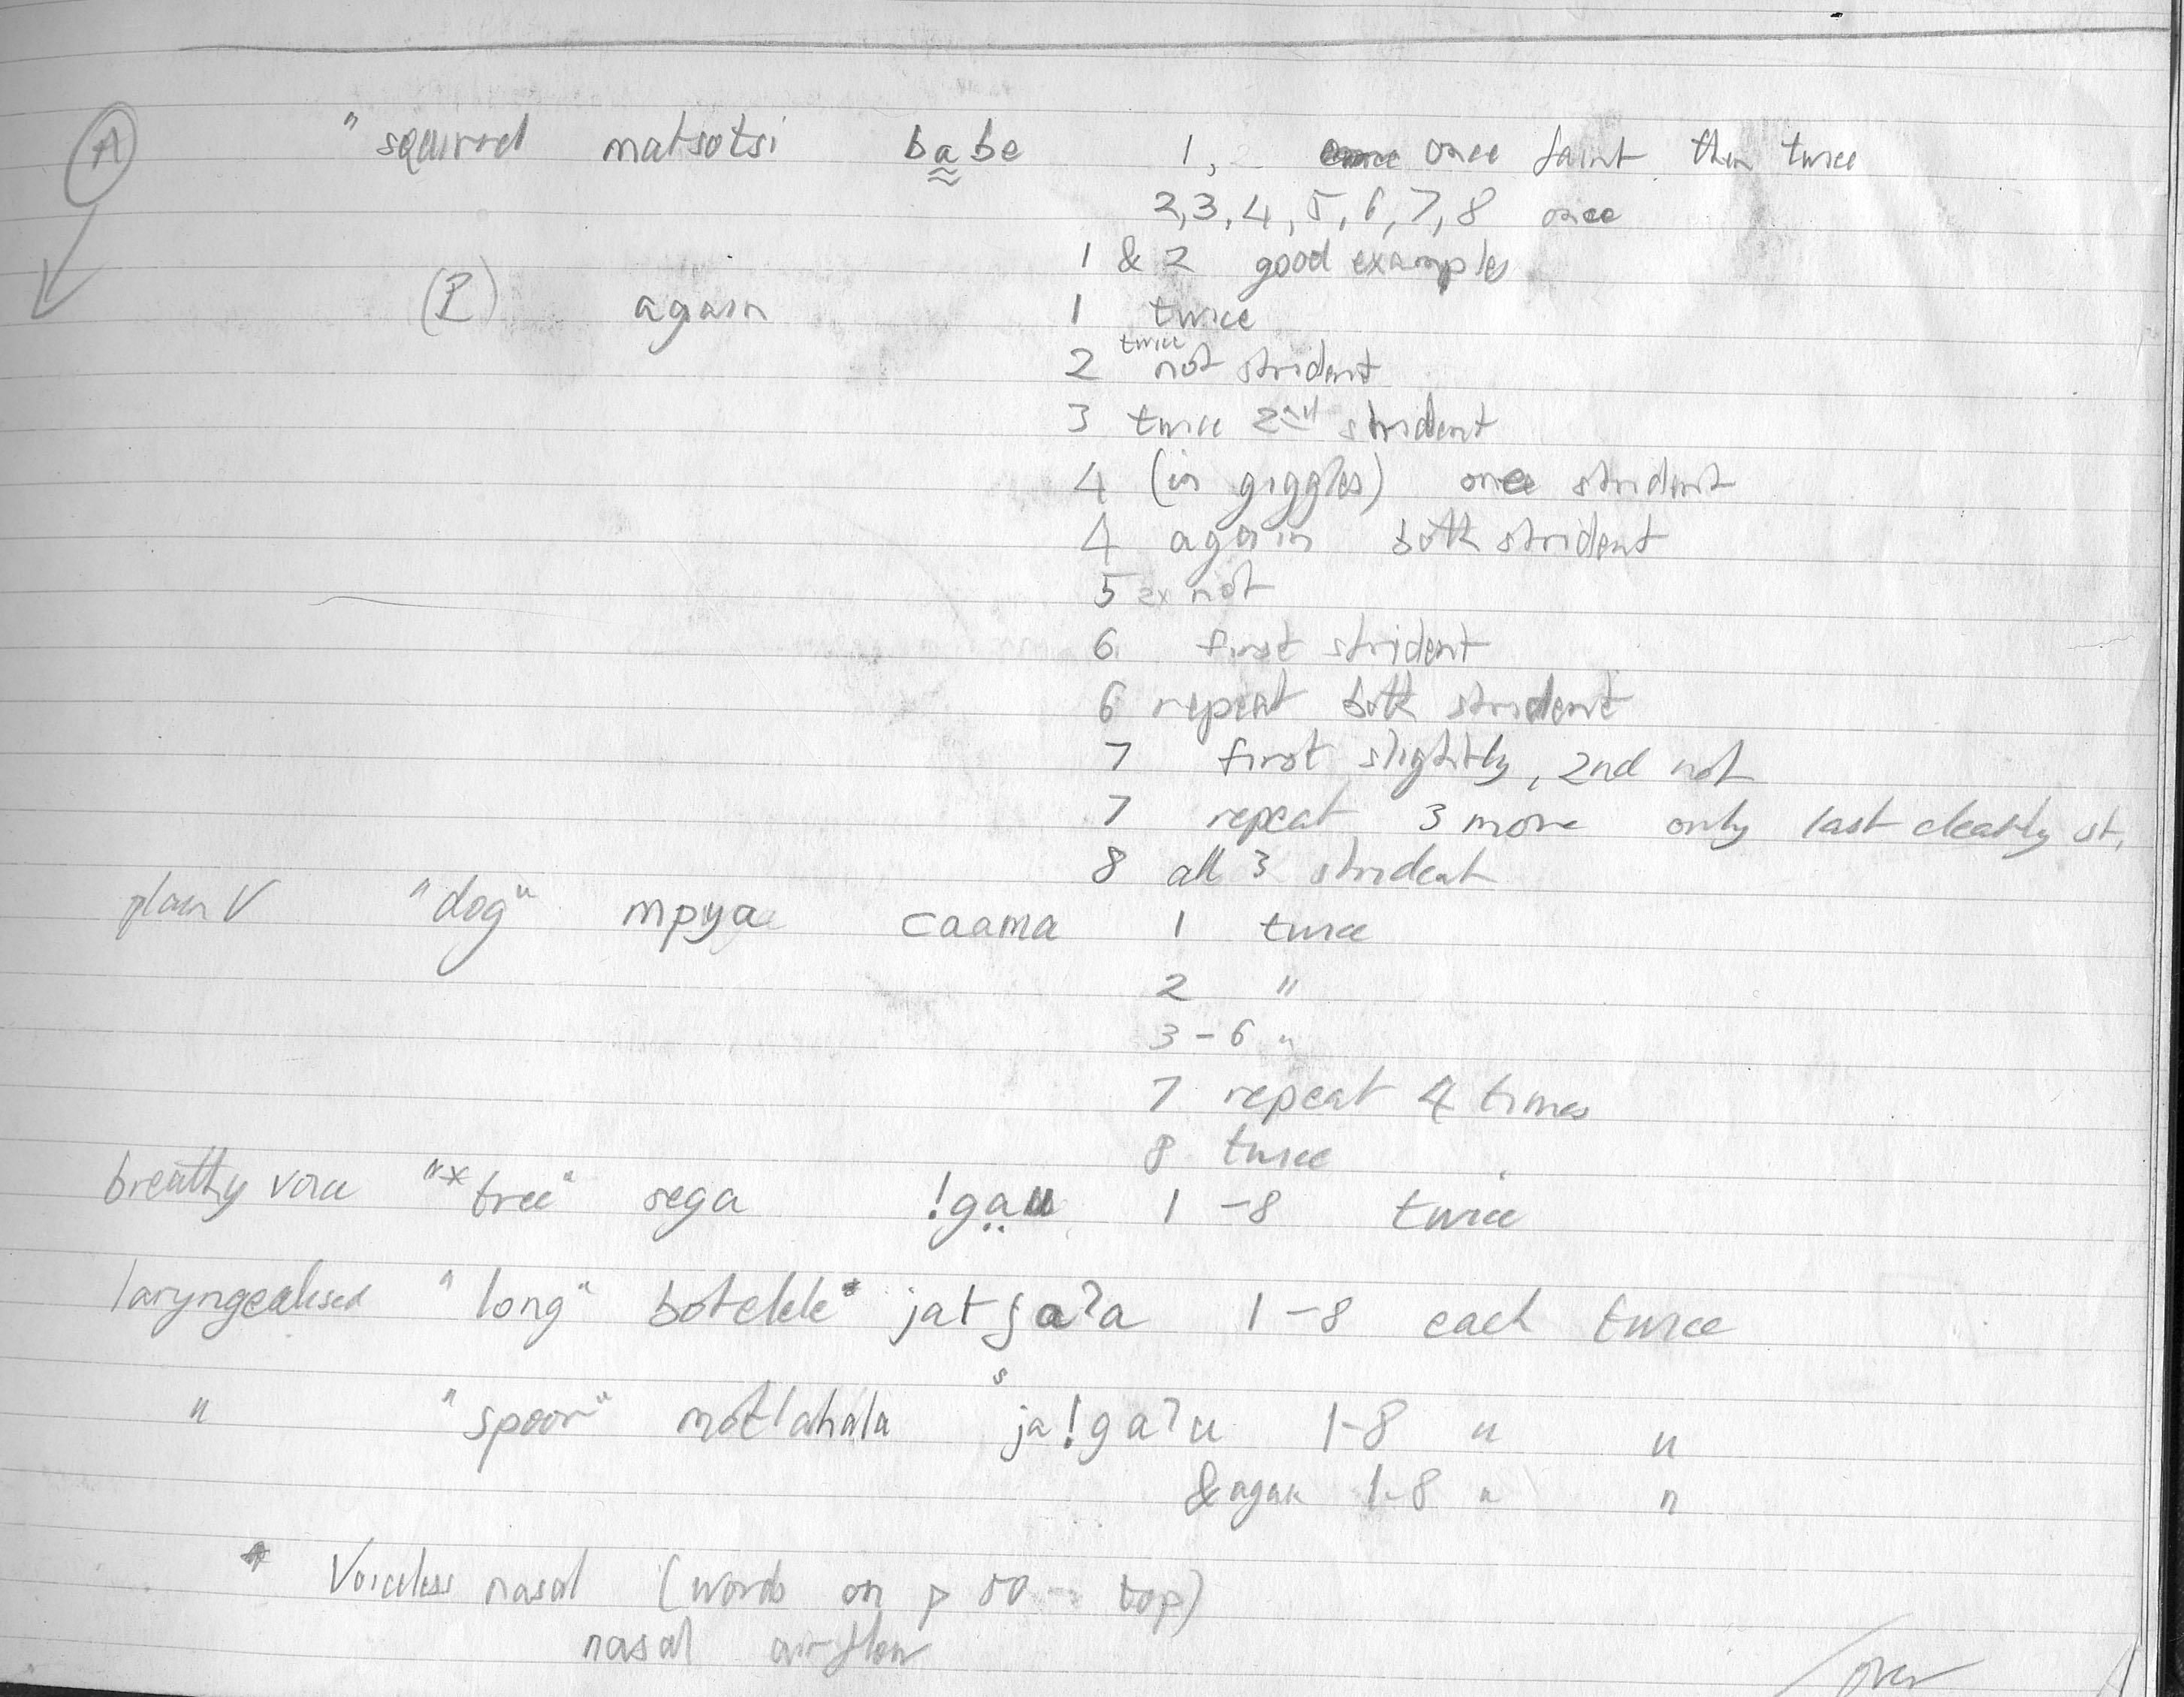 A " squirrel matsotsi ba̰̰be 1, 2 once faint then twice
2,3,4,5,6,7,8 once
1 & 2 good examples
(I) again 1 twice
2 twice not strident
3 twice 2nd strident
4 (in giggles) once strident
4 again both strident
5 2x not
6 first strident
6 repeat both strident
7 first slightly, 2nd not
7 repeat 3 more only last clearly st.
8 all 3 strident
plain V "dog" mpya caama 1 twice
2 "
3 - 6 "
7 repeat 4 times
8 twice
breathy voice "* tree" sega !ga̤u 1 - 8 twice
laryngealised "long" botelele* 1 - 8 each twice
" "spoor" motlahala ja!gaʔu 1-8 " "
& again 1-8 " "
* Voiceless nasal (words on p 50 - top)
nasal airflow
over